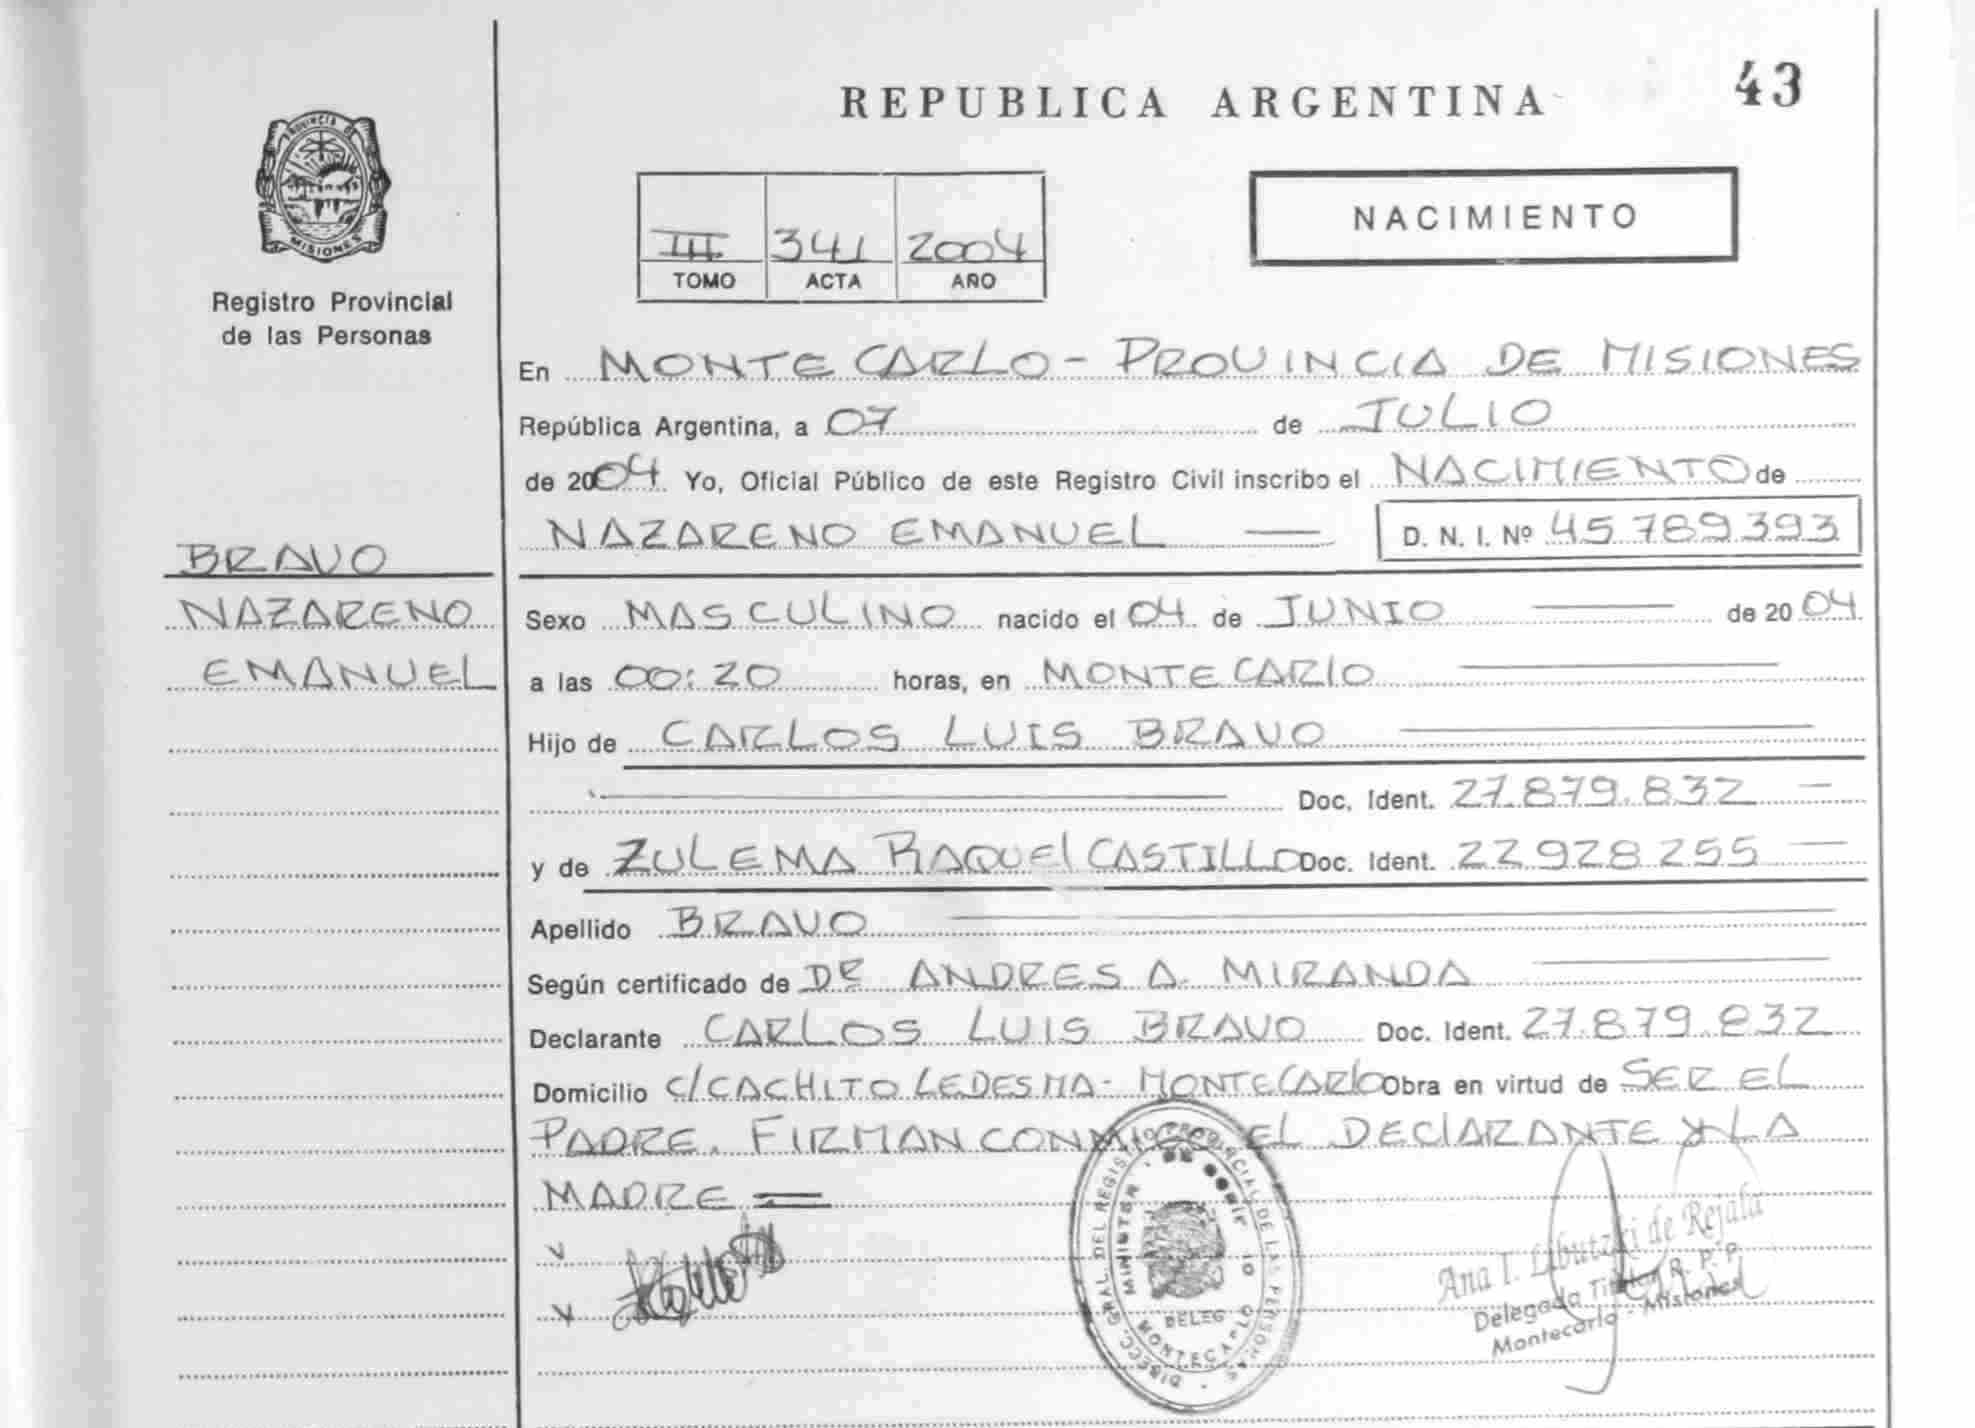 REPUBLICA ARGENTINA
43
PROVINCIA DE
MISIONES
Registro Provincial
de las Personas
III 341 2004
TOMO ACTA AÑO
NACIMIENTO
En MONTECARLO - PROVINCIA DE MISIONES
República Argentina, a 07 de JULIO
de 2004 Yo, Oficial Público de este Registro Civil inscribo el NACIMIENTO de
NAZARENO EMANUEL D. N. I. Nº 45.789.393
BRAVO
NAZARENO
EMANUEL
Sexo MASCULINO nacido el 04 de JUNIO de 2004
a las 00:20 horas, en MONTECARlO
Hijo de CARLOS LUIS BRAVO
Doc. Ident. 27.879.832
y de ZULEMA RAQUEl CASTILLO Doc. Ident. 22.928.255
Apellido BRAVO
Según certificado de DR ANDRES A. MIRANDA
Declarante CARLOS LUIS BRAVO Doc. Ident. 27.879.832
Domicilio C/CACHITO LEDESMA - MONTECARlO Obra en virtud de SER EL
PADRE. FIRMAN CONMIGO EL DEClARANTE Y LA
MADRE
DIRECC. GRAL. DEL REGISTRO PROVINCIAL DE LAS PERSONAS
MONTECARLO
DELEG
Ana I. Libutzki de Rejala
Delegada Titular R. P. P.
Montecarlo - Misiones